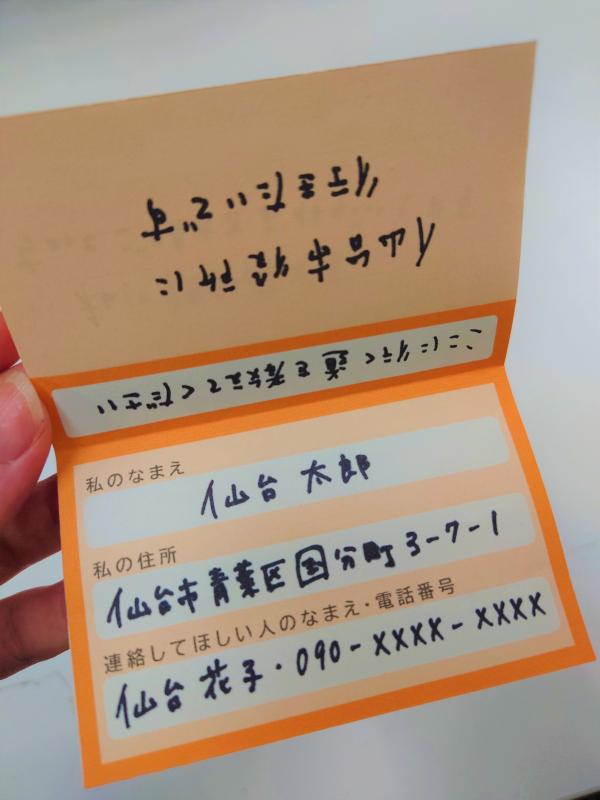 仙台市役所に
行きたいです
ここに行く道を教えてください
私のなまえ
仙台 太郎
私の住所
仙台市青葉区国分町3-7-1
連絡してほしい人のなまえ・電話番号
仙台 花子・090-XXXX-XXXX